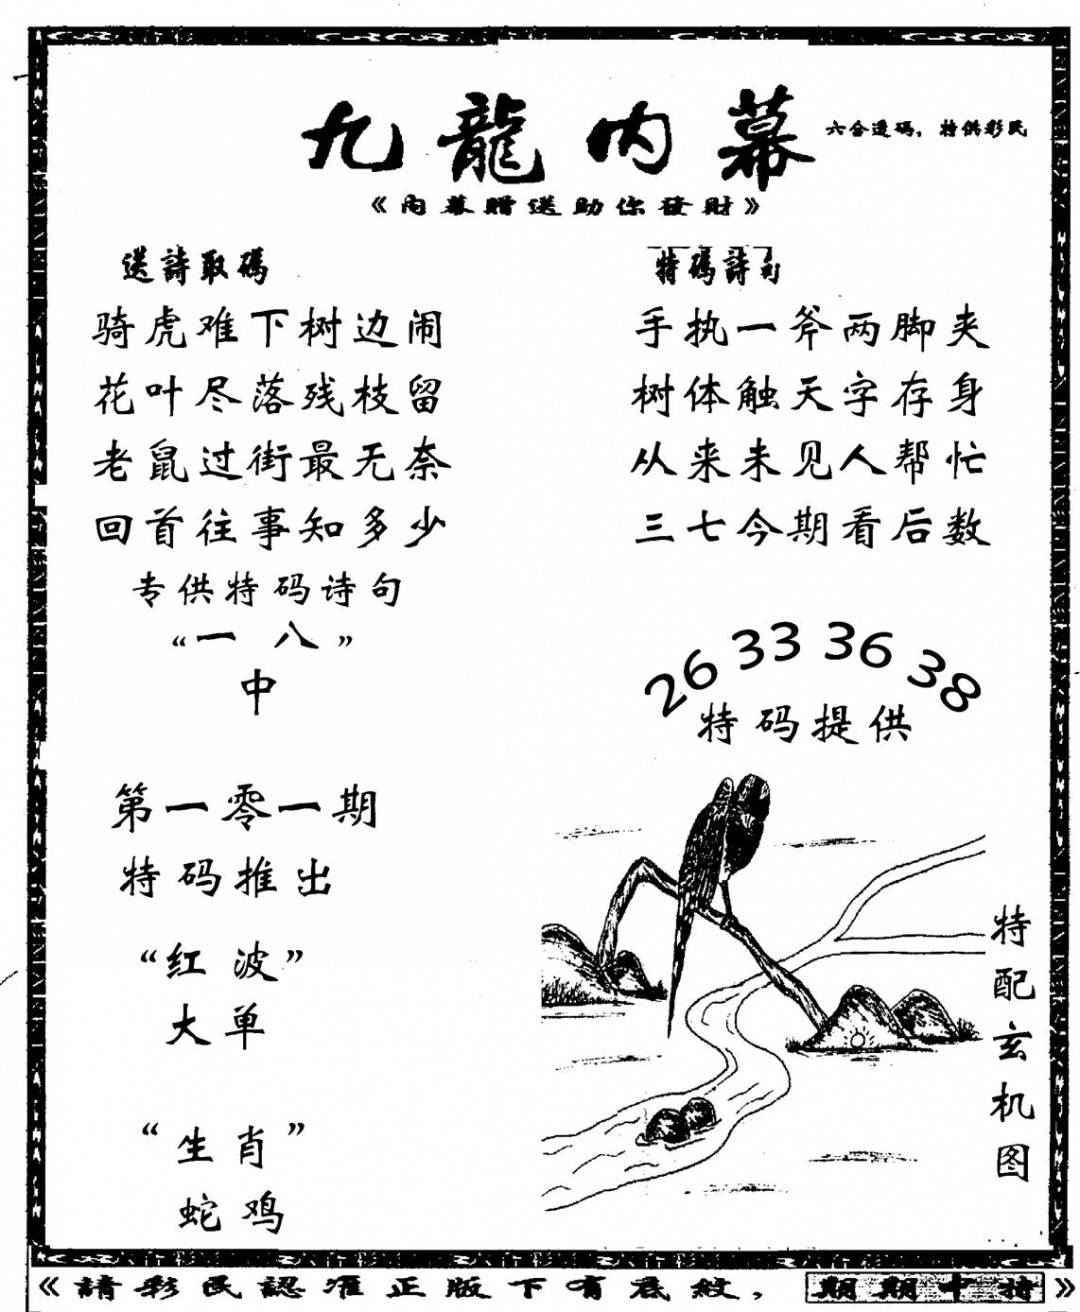 九龍内幕
六合透碼，特供彩民
《内幕贈送助你發財》
送詩取碼
骑虎难下树边闹
花叶尽落残枝留
老鼠过街最无奈
回首往事知多少
专供特码诗句
“一八”
中
第一零一期
特码推出
“红波”
大单
“生肖”
蛇鸡
特碼詩句
手执一斧两脚夹
树体触天字存身
从来未见人帮忙
三七今期看后数
26 33 36 38
特码提供
特配玄机图
《請彩民認准正版下有底紋，期期中特》